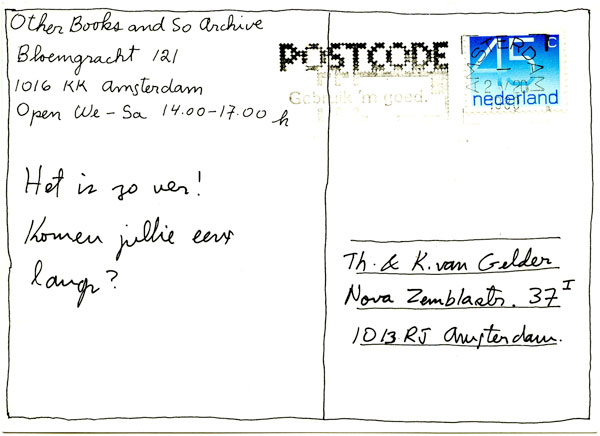 Other Books and So Archive
Bloemgracht 121
1016 KK Amsterdam
Open We - Sa 14.00-17.00 h
POSTCODE
Gebruik 'm goed.
AMSTERDAM
45 c
nederland
Het is zo ver!
Komen jullie eens
langs?
Th. & K. van Gelder
Nova Zemblastr. 37 I
1013 RJ Amsterdam.